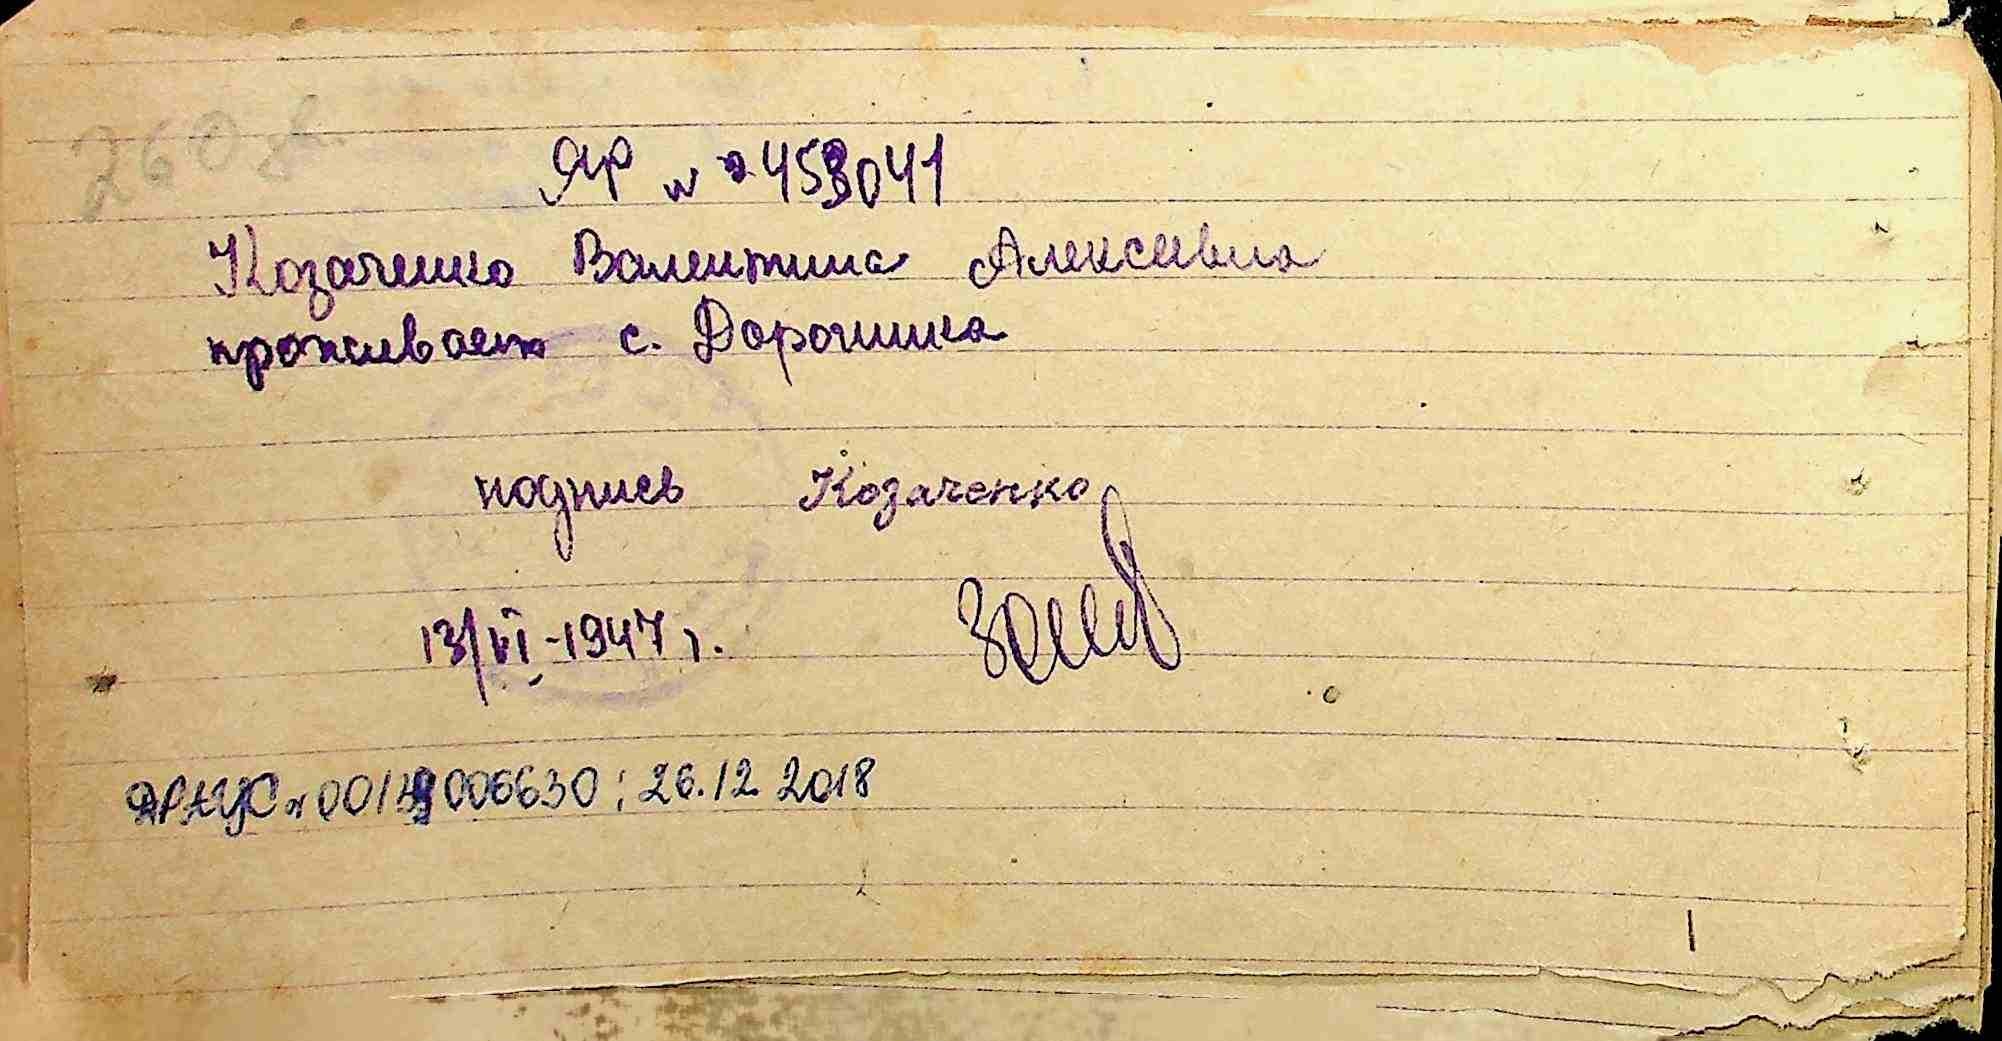 260 
ЯР № 453041
Козаченко Валентина Алексеевна
проживает с. Дорогинка
подпись Козаченко
13/VI-1947 г.
ДРАЦС № 00119006630; 26.12 2018